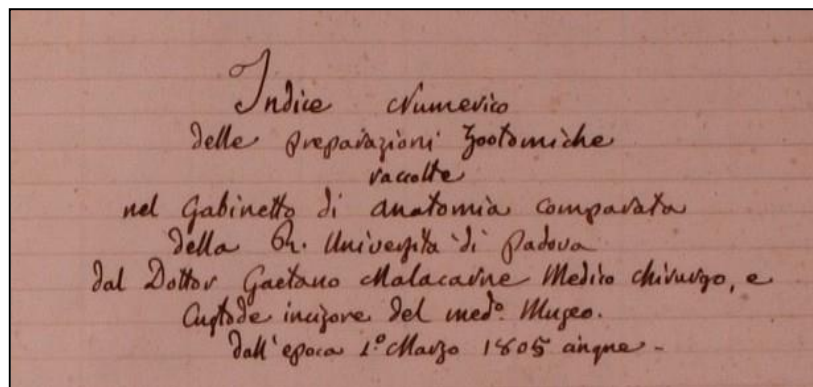 Indice Numerico
delle preparazioni Zootomiche
raccolte
nel Gabinetto di Anatomia comparata
della R. Università di Padova
dal Dottor Gaetano Malacarne Medico chirurgo, e
Custode incisore del med.º Museo.
dall'epoca 1.º Marzo 1805 cinque -